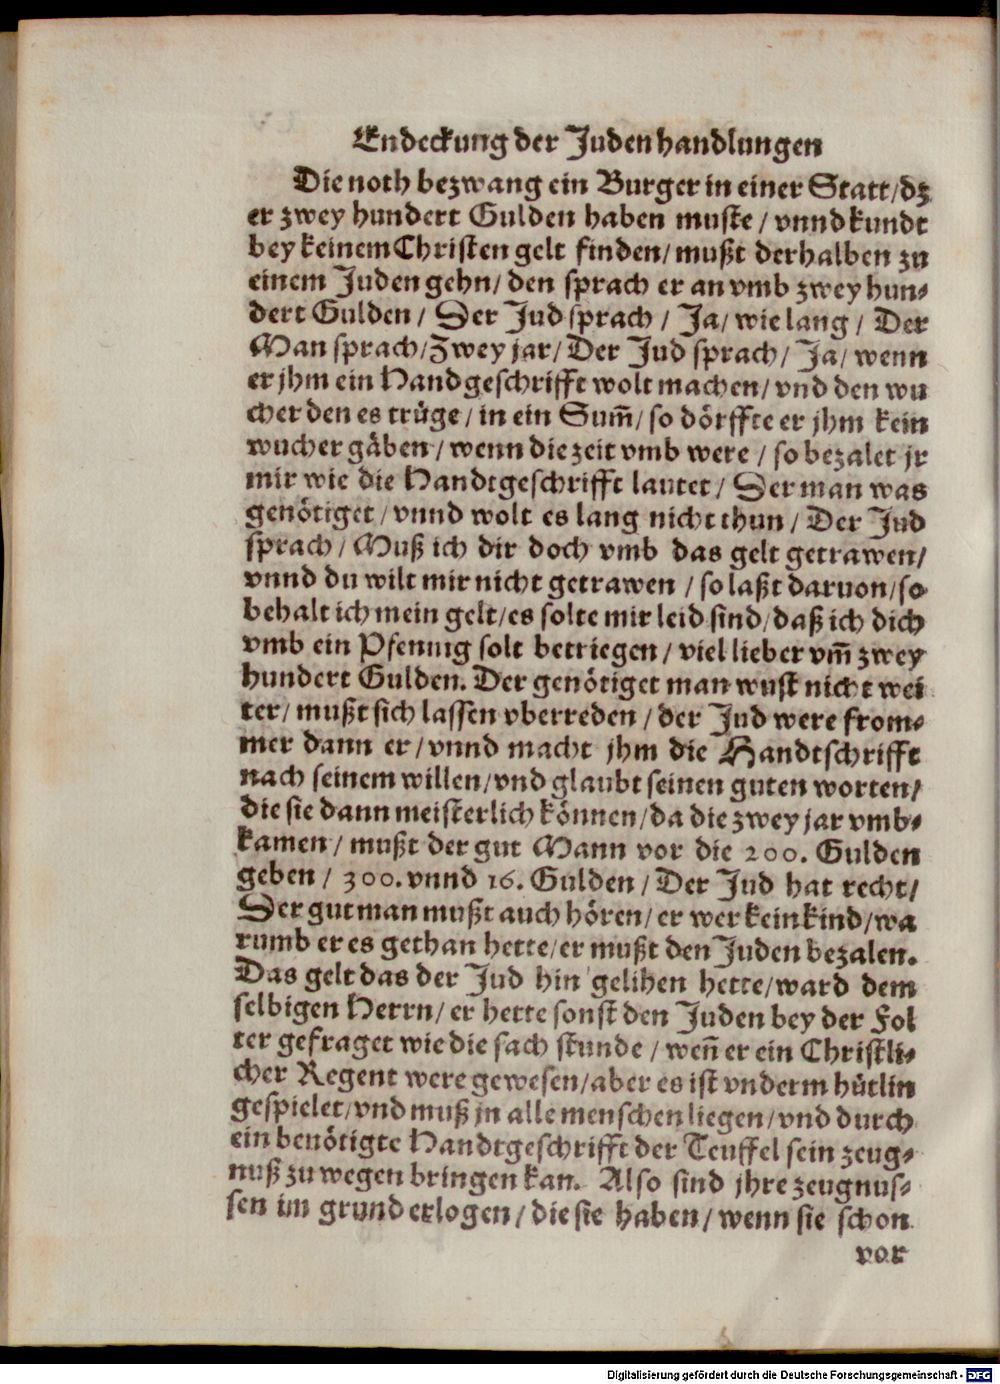 Endeckung der Juden handlungen
Die noth bezwang ein Burger in einer Statt/dz
er zwey hundert Gulden haben muste / vnnd kundt
bey keinem Christen gelt finden/ mußt derhalben zu
einem Juden gehn/ den sprach er an vmb zwey hun-
dert Gulden / Der Jud sprach / Ja/ wie lang / Der
Man sprach/Zwey jar/ Der Jud sprach/ Ja/ wenn
er jhm ein Handgeschrifft wolt machen/ vnd den wu
cher den es trüge/ in ein Sum̃/ so dörffte er jhm kein
wucher gäben/ wenn die zeit vmb were / so bezalet jr
mir wie die Handtgeschrifft lautet / Der man was
genötiget / vnnd wolt es lang nicht thun / Der Jud
sprach / Muß ich dir doch vmb das gelt getrawen/
vnnd du wilt mir nicht getrawen / so laßt daruon/so
behalt ich mein gelt/es solte mir leid sind/daß ich dich
vmb ein Pfennig solt betriegen/ viel lieber vm̃ zwey
hundert Gulden. Der genötiget man wust nicht wei
ter/ mußt sich lassen vberreden / der Jud were from-
mer dann er/vnnd macht jhm die Handtschrifft
nach seinem willen/vnd glaubt seinen guten worten/
die sie dann meisterlich können/da die zwey jar vmb-
kamen/ mußt der gut Mann vor die 200. Gulden
geben / 300. vnnd 16. Gulden / Der Jud hat recht/
Der gut man mußt auch hören/ er wer kein kind/wa
rumb er es gethan hette/er mußt den Juden bezalen.
Das gelt das der Jud hin gelihen hette/ward dem
selbigen Herrn/ er hette sonst den Juden bey der Fol
ter gefraget wie die sach stunde / weñ er ein Christli-
cher Regent were gewesen/aber es ist vnderm hütlin
gespielet/vnd muß jn alle menschen liegen/vnd durch
ein benötigte Handtgeschrifft der Teuffel sein zeug-
nuß zu wegen bringen kan. Also sind jhre zeugnus-
sen im grund erlogen/ die sie haben/ wenn sie schon
vor
Digitalisierung gefördert durch die Deutsche Forschungsgemeinschaft - DFG